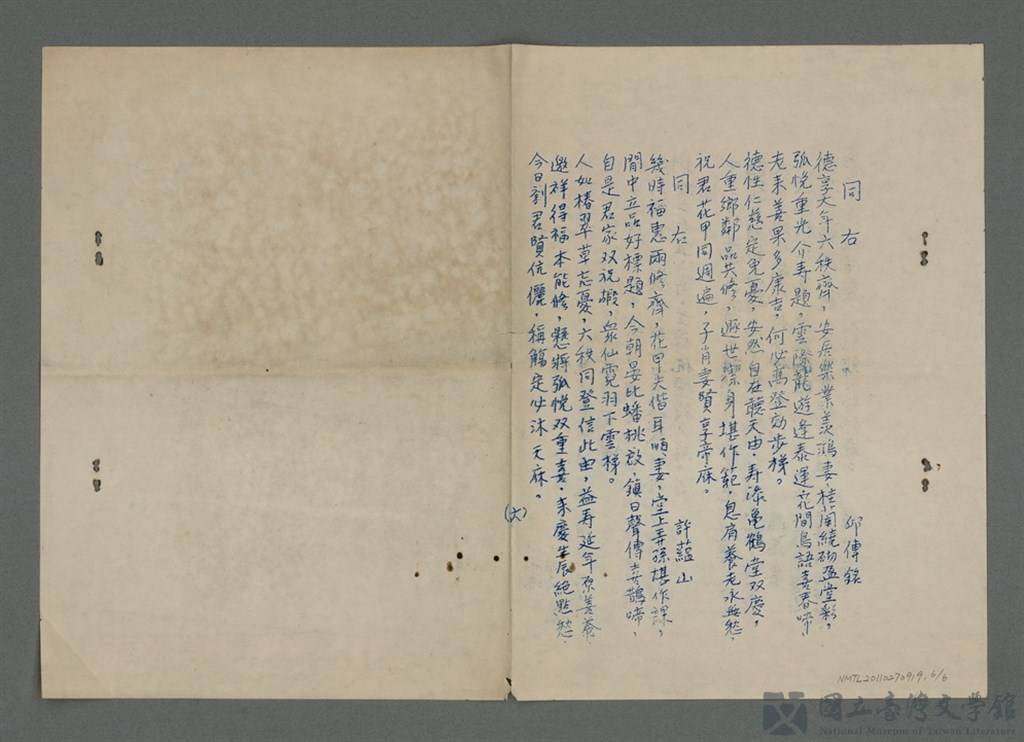 同右 邱傳銘
德享天年六秩齊，安居樂業羨鴻妻，桂蘭繞砌盈堂彩，
弧悅重光介寿題，雲際龍遊逢泰運，花間鳥語喜春啼，
老來善果多康吉，何必高登効步梯。
德性仁慈定免憂，安然自在聽天由，寿添亀鶴堂双慶，
人重鄉鄰品共修，遯世潔身堪作範，息肩養老永無愁，
祝君花甲同週遍，子肖妻賢享帝庥。
同右 許藍山
幾時福惠兩修齊，花甲夫偕耳順妻，堂上弄孫堪作課，
閒中立品好標題，今朝晏比蟠桃設，鎮日聲傳喜鵲啼，
自是君家双祝嘏，眾仙霓羽下雲梯。
人如椿翠草忘憂，六秩同登信此由，益寿延年原善養
邀祥得福本能修，懸蔣弧悅双重喜，来慶生辰絕點愁，
今日刘君賢伉儷，稱觴定必沐天庥。
(六)
NMTL20110270919.6/6
國立臺灣文學館
National Museum of Taiwan Literature